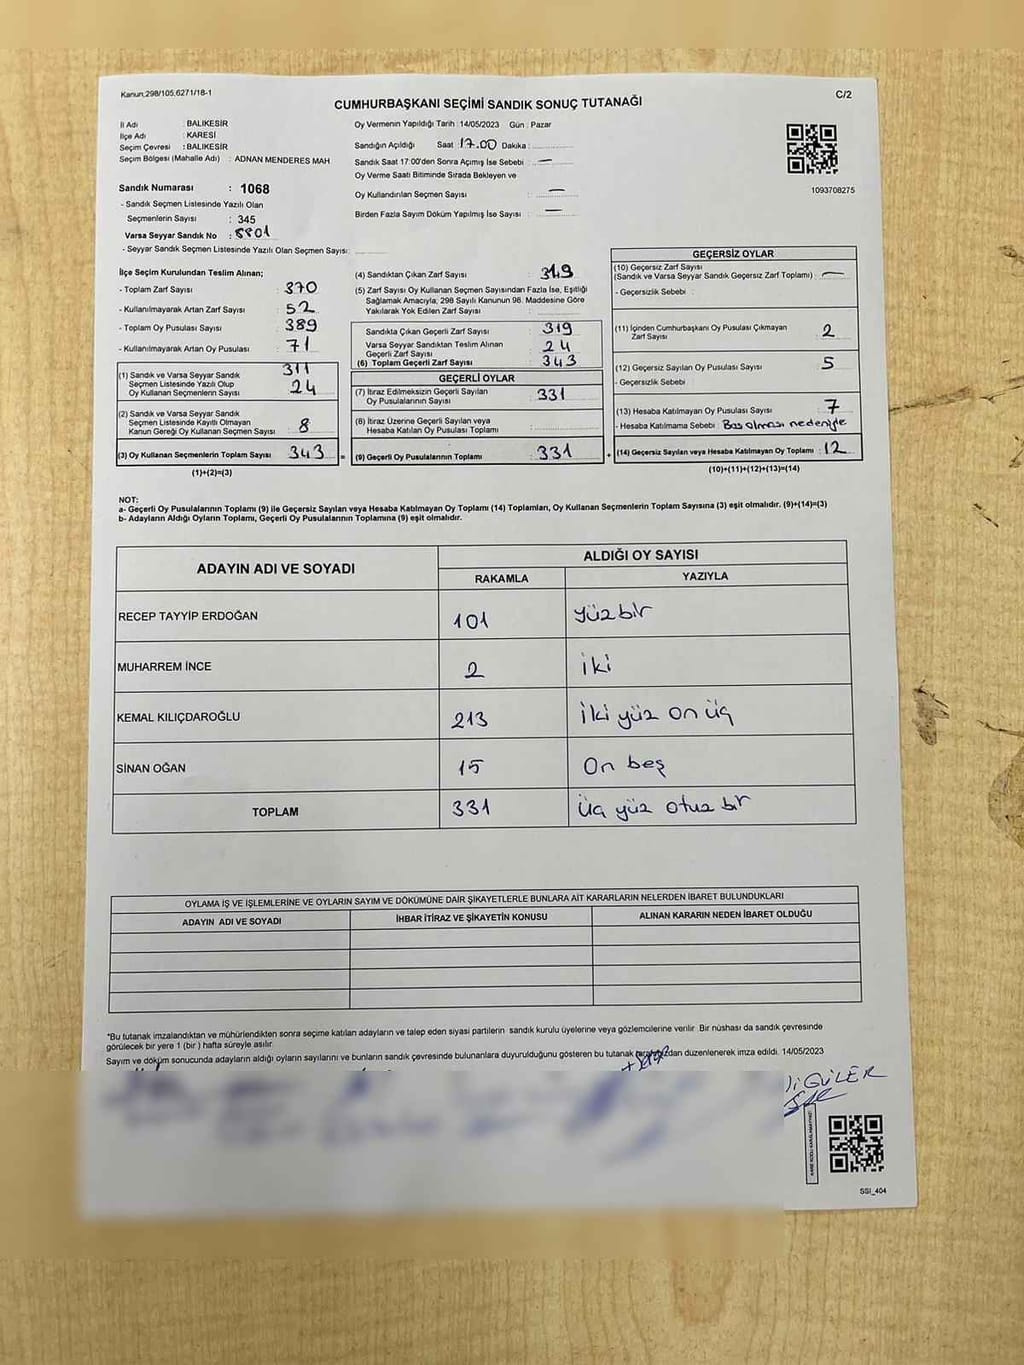 Kanun;298/105,6271/18-1
C/2
CUMHURBAŞKANI SEÇİMİ SANDIK SONUÇ TUTANAĞI
İl Adı : BALIKESİR
İlçe Adı : KARESİ
Seçim Çevresi : BALIKESİR
Seçim Bölgesi (Mahalle Adı) : ADNAN MENDERES MAH
Sandık Numarası : 1068
- Sandık Seçmen Listesinde Yazılı Olan
Seçmenlerin Sayısı : 345
Varsa Seyyar Sandık No : 8801
- Seyyar Sandık Seçmen Listesinde Yazılı Olan Seçmen Sayısı:
Oy Vermenin Yapıldığı Tarih : 14/05/2023 Gün : Pazar
Sandığın Açıldığı Saat : 17.00 Dakika :
Sandık Saat 17:00'den Sonra Açımış İse Sebebi : —
Oy Verme Saati Bitiminde Sırada Bekleyen ve
Oy Kullandırılan Seçmen Sayısı : —
Birden Fazla Sayım Döküm Yapılmış İse Sayısı : —
1093708275
İlçe Seçim Kurulundan Teslim Alınan;
- Toplam Zarf Sayısı : 370
- Kullanılmayarak Artan Zarf Sayısı : 52
- Toplam Oy Pusulası Sayısı : 389
- Kullanılmayarak Artan Oy Pusulası : 71
(1) Sandık ve Varsa Seyyar Sandık
Seçmen Listesinde Yazılı Olup
Oy Kullanan Seçmenlerin Sayısı : 311
24
(2) Sandık ve Varsa Seyyar Sandık
Seçmen Listesinde Kayıtlı Olmayan
Kanun Gereği Oy Kullanan Seçmen Sayısı : 8
(3) Oy Kullanan Seçmenlerin Toplam Sayısı : 343
(1)+(2)=(3)
(4) Sandıktan Çıkan Zarf Sayısı : 319
(5) Zarf Sayısı Oy Kullanan Seçmen Sayısından Fazla İse, Eşitliği
Sağlamak Amacıyla, 298 Sayılı Kanunun 98. Maddesine Göre
Yakılarak Yok Edilen Zarf Sayısı :
Sandıkta Çıkan Geçerli Zarf Sayısı : 319
Varsa Seyyar Sandıktan Teslim Alınan
Geçerli Zarf Sayısı : 24
(6) Toplam Geçerli Zarf Sayısı : 343
GEÇERLİ OYLAR
(7) İtiraz Edilmeksizin Geçerli Sayılan
Oy Pusulalarının Sayısı : 331
(8) İtiraz Üzerine Geçerli Sayılan veya
Hesaba Katılan Oy Pusulası Toplamı :
(9) Geçerli Oy Pusulalarının Toplamı : 331
GEÇERSİZ OYLAR
(10) Geçersiz Zarf Sayısı
(Sandık ve Varsa Seyyar Sandık Geçersiz Zarf Toplamı) : —
- Geçersizlik Sebebi :
(11) İçinden Cumhurbaşkanı Oy Pusulası Çıkmayan
Zarf Sayısı : 2
(12) Geçersiz Sayılan Oy Pusulası Sayısı : 5
- Geçersizlik Sebebi :
(13) Hesaba Katılmayan Oy Pusulası Sayısı : 7
- Hesaba Katılmama Sebebi : Boş olması nedeniyle
(14) Geçersiz Sayılan veya Hesaba Katılmayan Oy Toplamı : 12
(10)+(11)+(12)+(13)=(14)
NOT:
a- Geçerli Oy Pusulalarının Toplamı (9) ile Geçersiz Sayılan veya Hesaba Katılmayan Oy Toplamı (14) Toplamları, Oy Kullanan Seçmenlerin Toplam Sayısına (3) eşit olmalıdır. (9)+(14)=(3)
b- Adayların Aldığı Oyların Toplamı, Geçerli Oy Pusulalarının Toplamına (9) eşit olmalıdır.
ADAYIN ADI VE SOYADI ALDIĞI OY SAYISI
RAKAMLA YAZIYLA
RECEP TAYYİP ERDOĞAN 101 yüz bir
MUHARREM İNCE 2 iki
KEMAL KILIÇDAROĞLU 213 iki yüz on üç
SİNAN OĞAN 15 On beş
TOPLAM 331 Üç yüz otuz bir
OYLAMA İŞ VE İŞLEMLERİNE VE OYLARIN SAYIM VE DÖKÜMÜNE DAİR ŞİKAYETLERLE BUNLARA AİT KARARLARIN NELERDEN İBARET BULUNDUKLARI
ADAYIN ADI VE SOYADI İHBAR İTİRAZ VE ŞİKAYETİN KONUSU ALINAN KARARIN NEDEN İBARET OLDUĞU
*Bu tutanak imzalandıktan ve mühürlendikten sonra seçime katılan adayların ve talep eden siyasi partilerin sandık kurulu üyelerine veya gözlemcilerine verilir. Bir nüshası da sandık çevresinde
görülecek bir yere 1 (bir) hafta süreyle asılır.
Sayım ve döküm sonucunda adayların aldığı oyların sayılarını ve bunların sandık çevresinde bulunanlara duyurulduğunu gösteren bu tutanak düzenlenerek imza edildi. 14/05/2023
GÜLER
SSİ_404